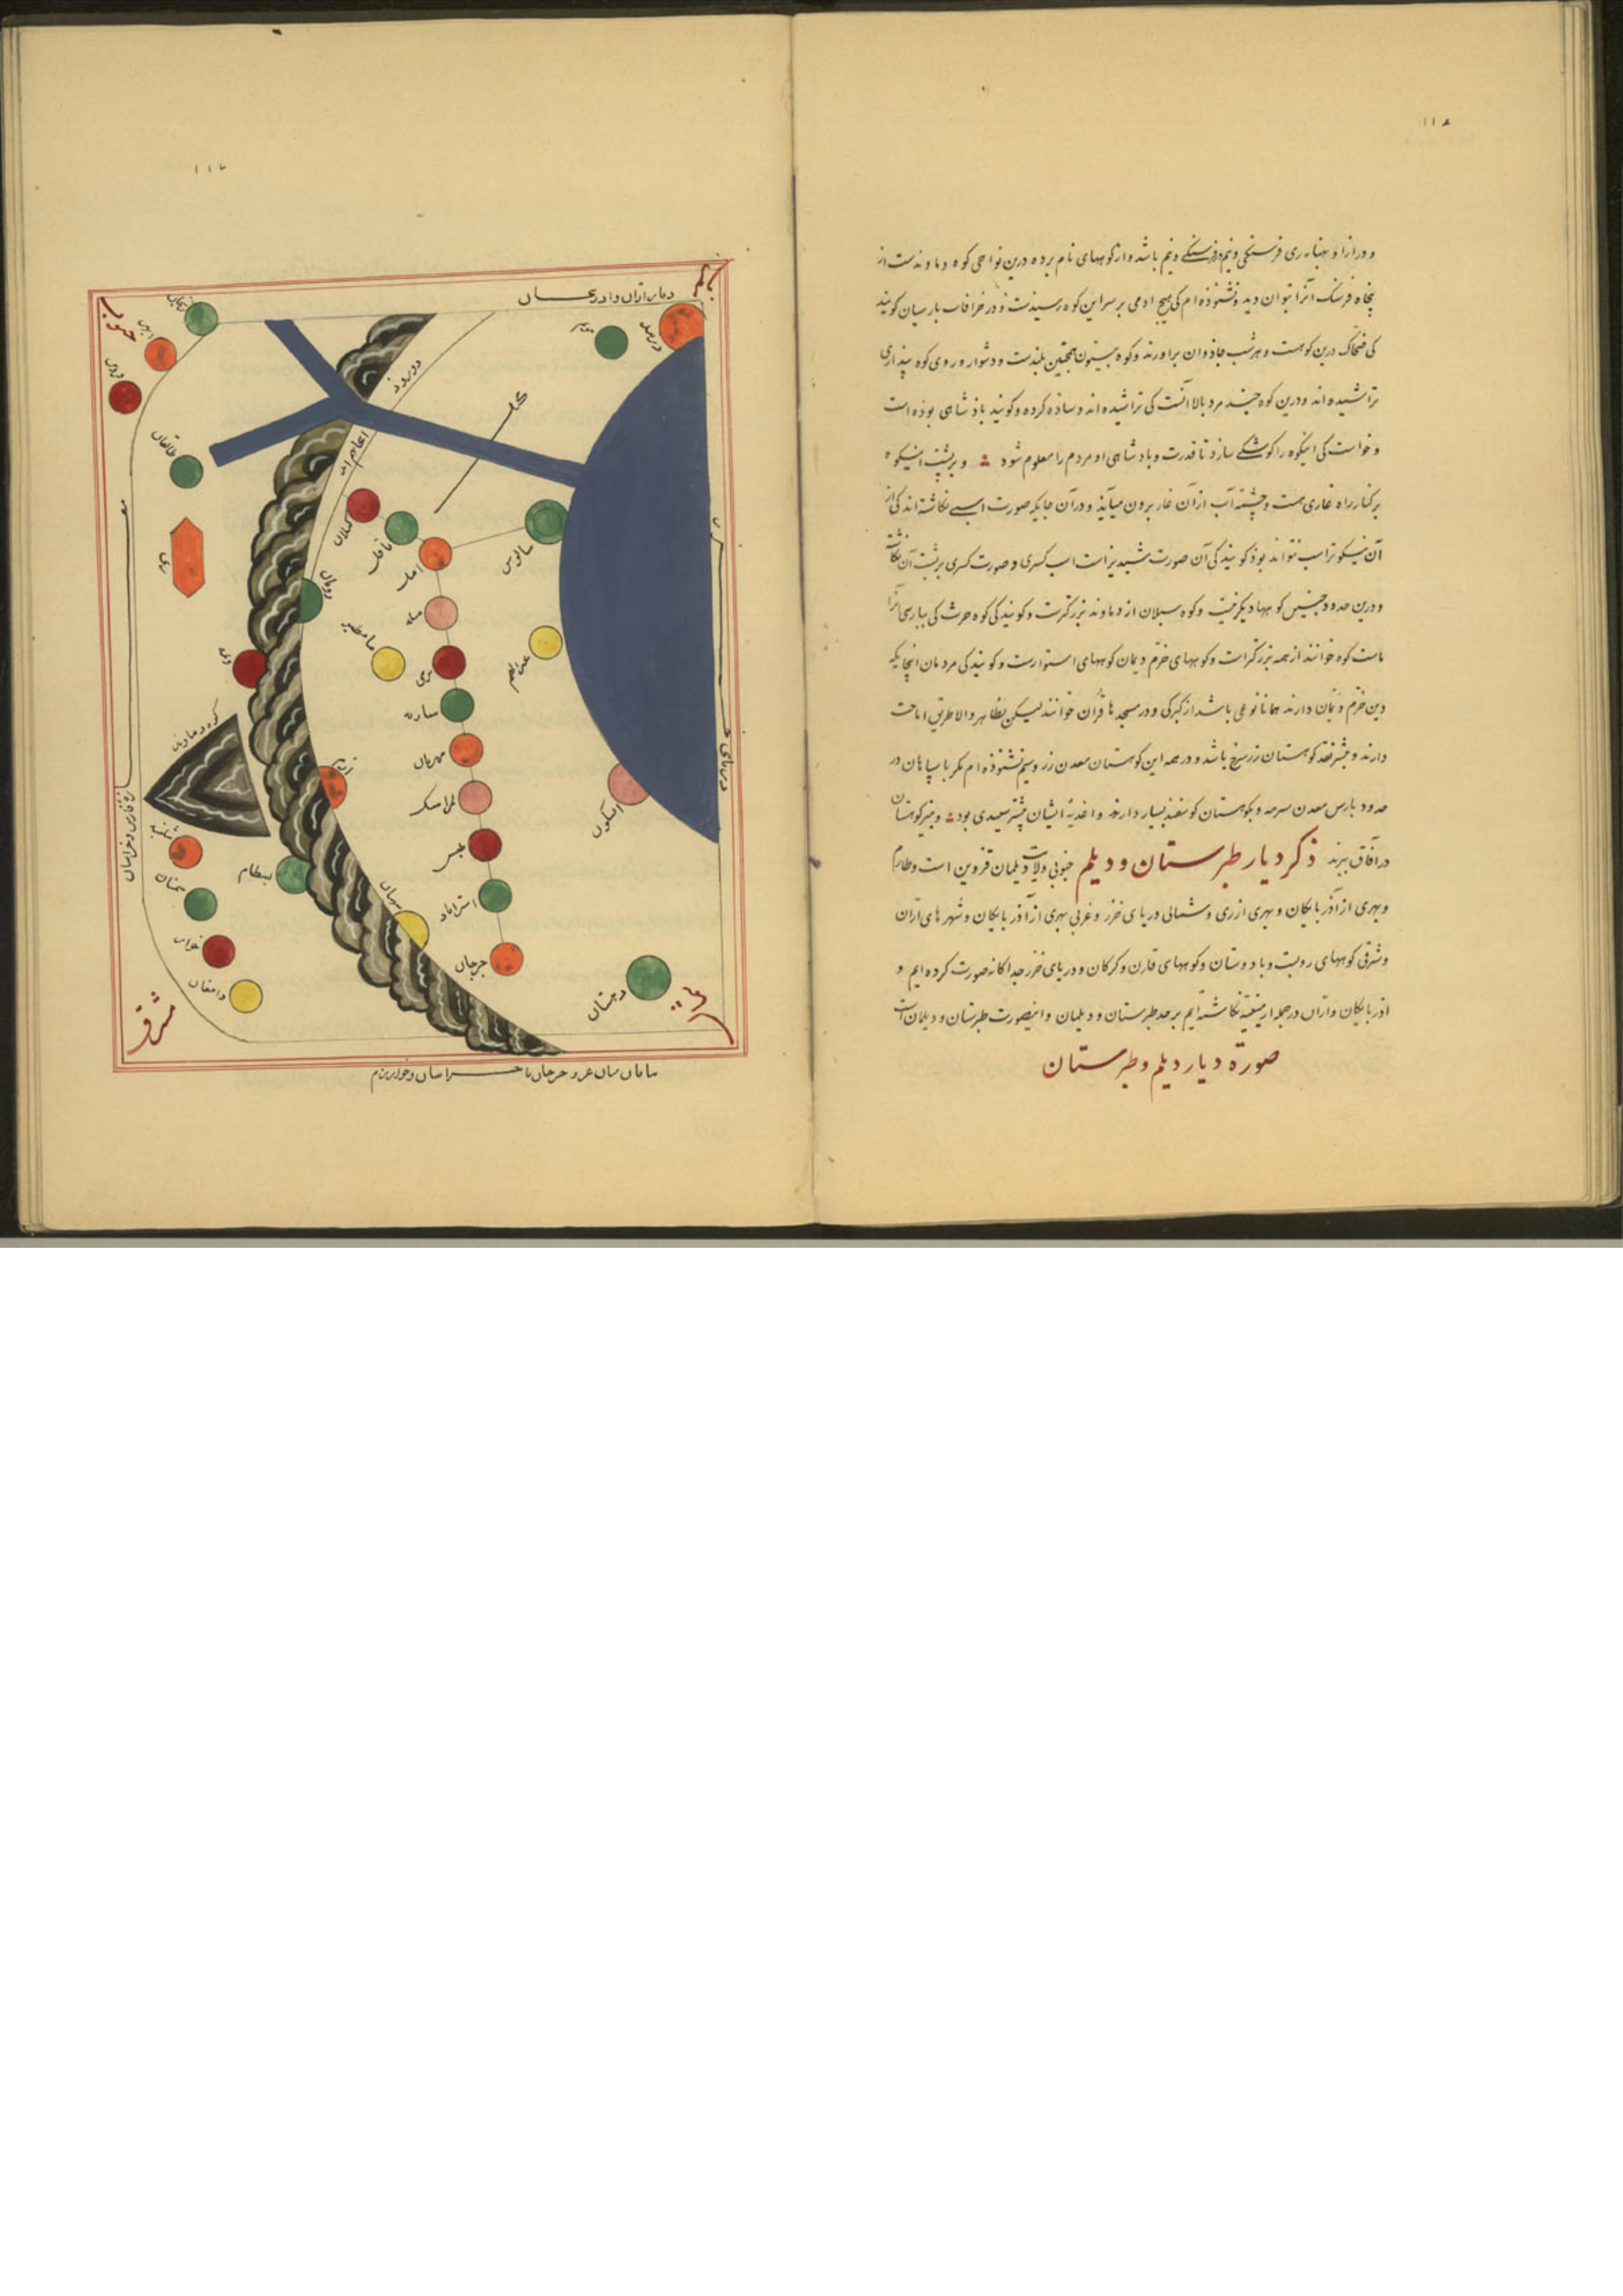 ۱۱۶
و درازا و پهناء ری فرسنگی و نیم در فرسنگی و نیم باشد و از کوههای نام برده درین نواحی کوه دماوندست از
پنجاه فرسنگ آنرا بتوان دید و نشنوذه‌ام کی هیچ ادمی بر سر این کوه رسیدست و در خرافات پارسیان کویند
کی ضحاک درین کوهست و هر شب جاذوان براورند و کوه بیستون همچنین بلندست و دشوار و روی کوه پنداری
تراشیده‌اند و درین کوه چند مرد بالا انست کی تراشیده‌اند و ساذه کرده و کویند باذشاهی بوذه است
و خواست کی اینکوه را کوشکی سازد تا قدرت و بادشاهی او مردم را معلوم شود و بر پشت اینکوه
بر کنار راه غاری هست و چشمه آب از آن غار برون میآید و در آن جایکه صورت اسبی نکاشته‌اند کی از
آن نیکوتر اسب نتواند بوذ کویند کی آن صورت شبدیز است اسب کسری و صورت کسری بر پشت آن نکاشت
و درین حدود جنیس کوهها دیکر نیست و کوه سبلان از دماوند بزرکترست و کویند کی کوه حرث کی بپارسی آنرا
ماست کوه خوانند از همه بزرکتر است و کوههای خرم دینان کوههای استوارست و کویند کی مردمان انجایکه
دین خرم دینان دارند همانا نوعی باشد از کبرکی و در مسجدها قرآن خوانند لیکن بظاهر والا طریق اباحت
دارند و بیشتر نقد کوهستان زر سرخ باشد و در همه این کوهستان معدن زر و سیم نشنوذه‌ام مکر با سپاهان در
حدود پارس معدن سرمه و بکوهستان کوسفند بسیار دارند و اغذیهٔ ایشان بیشتر سعیدی بود و پنیر کوهستان
در آفاق ببرند ذکر دیار طبرستان و دیلم جنوبی ولایت دیلمان قزوین است و طارم
و بهری از آذربایکان و بهری از ری و شمالی دریای خزر و غربی بهری از آذربایکان و شهرهای اران
و شرقی کوههای روبنت و بادوستان و کوههای قارن و کرکان و دریای خزر جداکانه صورت کرده‌ایم و
اذربایکان و اران در جمله ارمینیه نکاشته‌ایم بر حد طبرستان و دیلمان و اینصورت طبرستان و دیلمان است
صورة دیار دیلم و طبرستان
۱۱۷
جنوب
شمال
دیار اران و ادربیجان
زنجان
ابهر
قزوین
موقان
دربند
طالقان
ری
کیلان
ناتل
امل
سالوس
میله
مامطیر
برجی
عین الهم
ساریه
مهروان
لمراسک
ابسکون
تمیشه
استراباد
جرجان
دهستان
رویان
ویمه
کوه دماوند
بسطام
سمنان
دامغان
دریای خزر
مفازه فارس و خراسان
مشرق
بیابان میان غز و جرجان تا خراسان و خوارزم